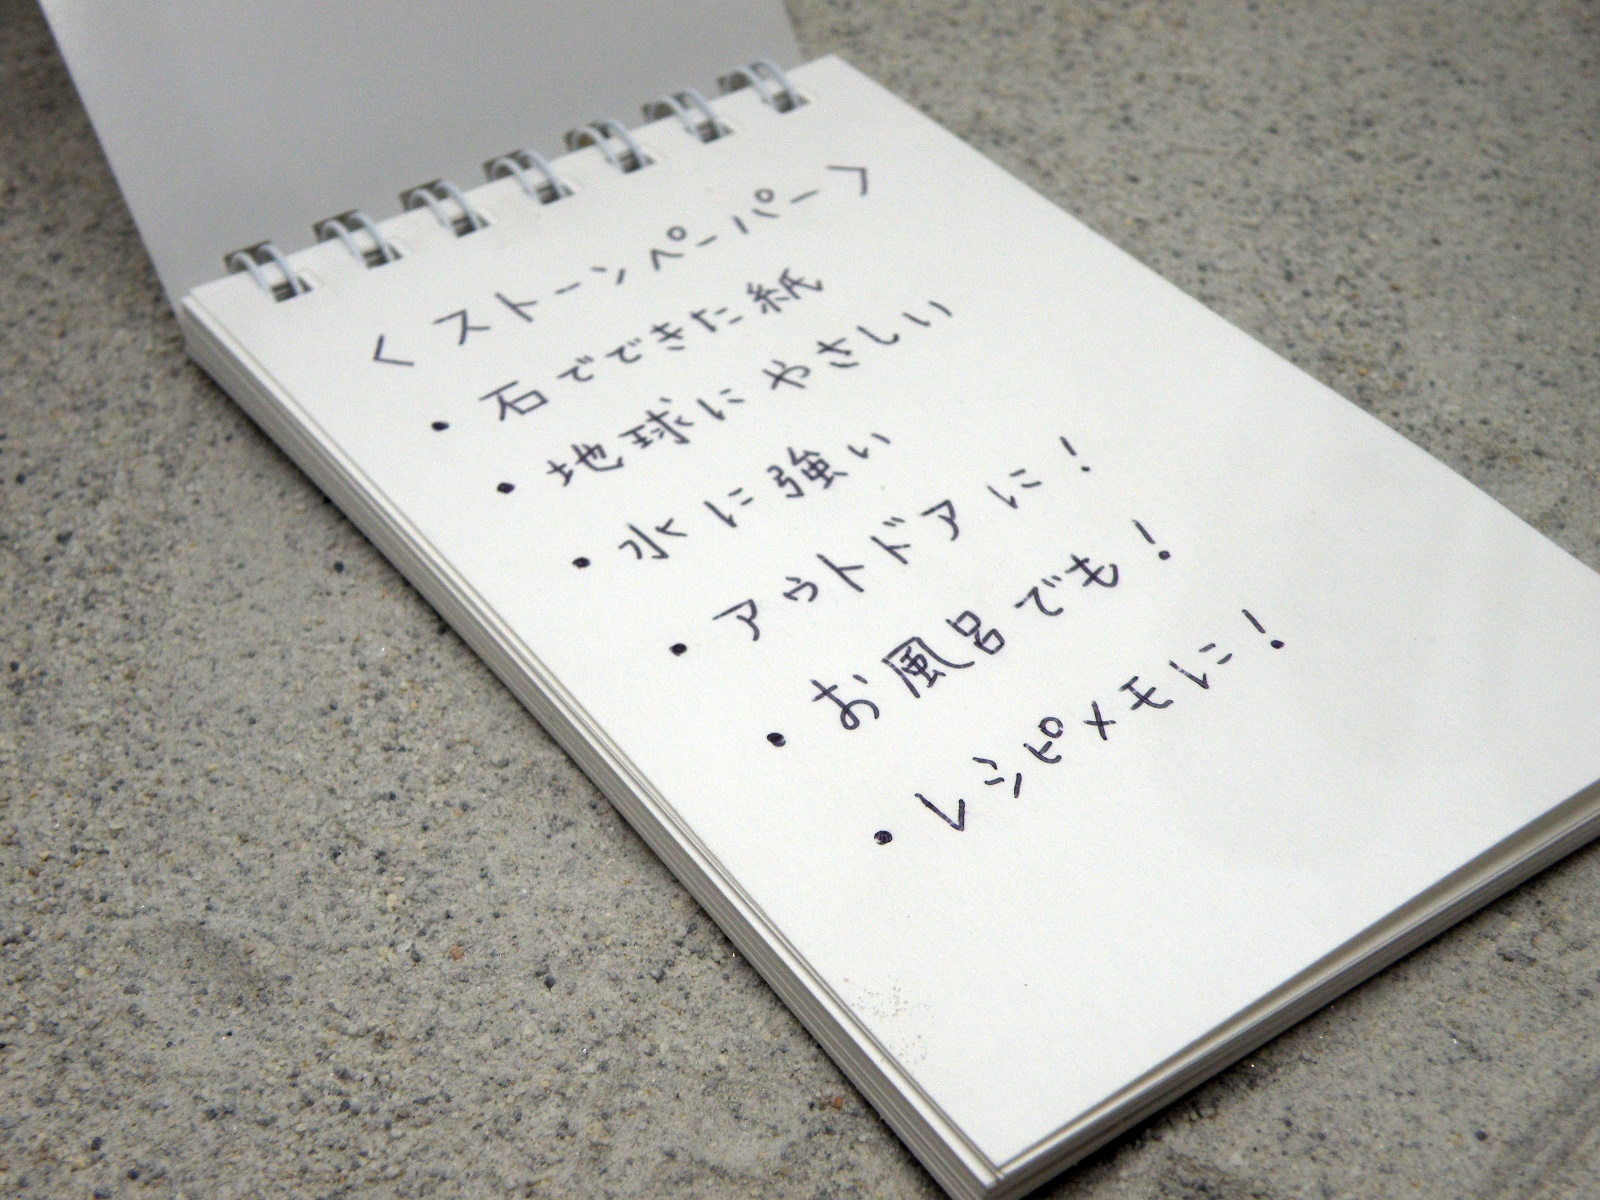 〈ストーンペーパー〉
・石でできた紙
・地球にやさしい
・水に強い
・アウトドアに!
・お風呂でも!
・レシピメモに!